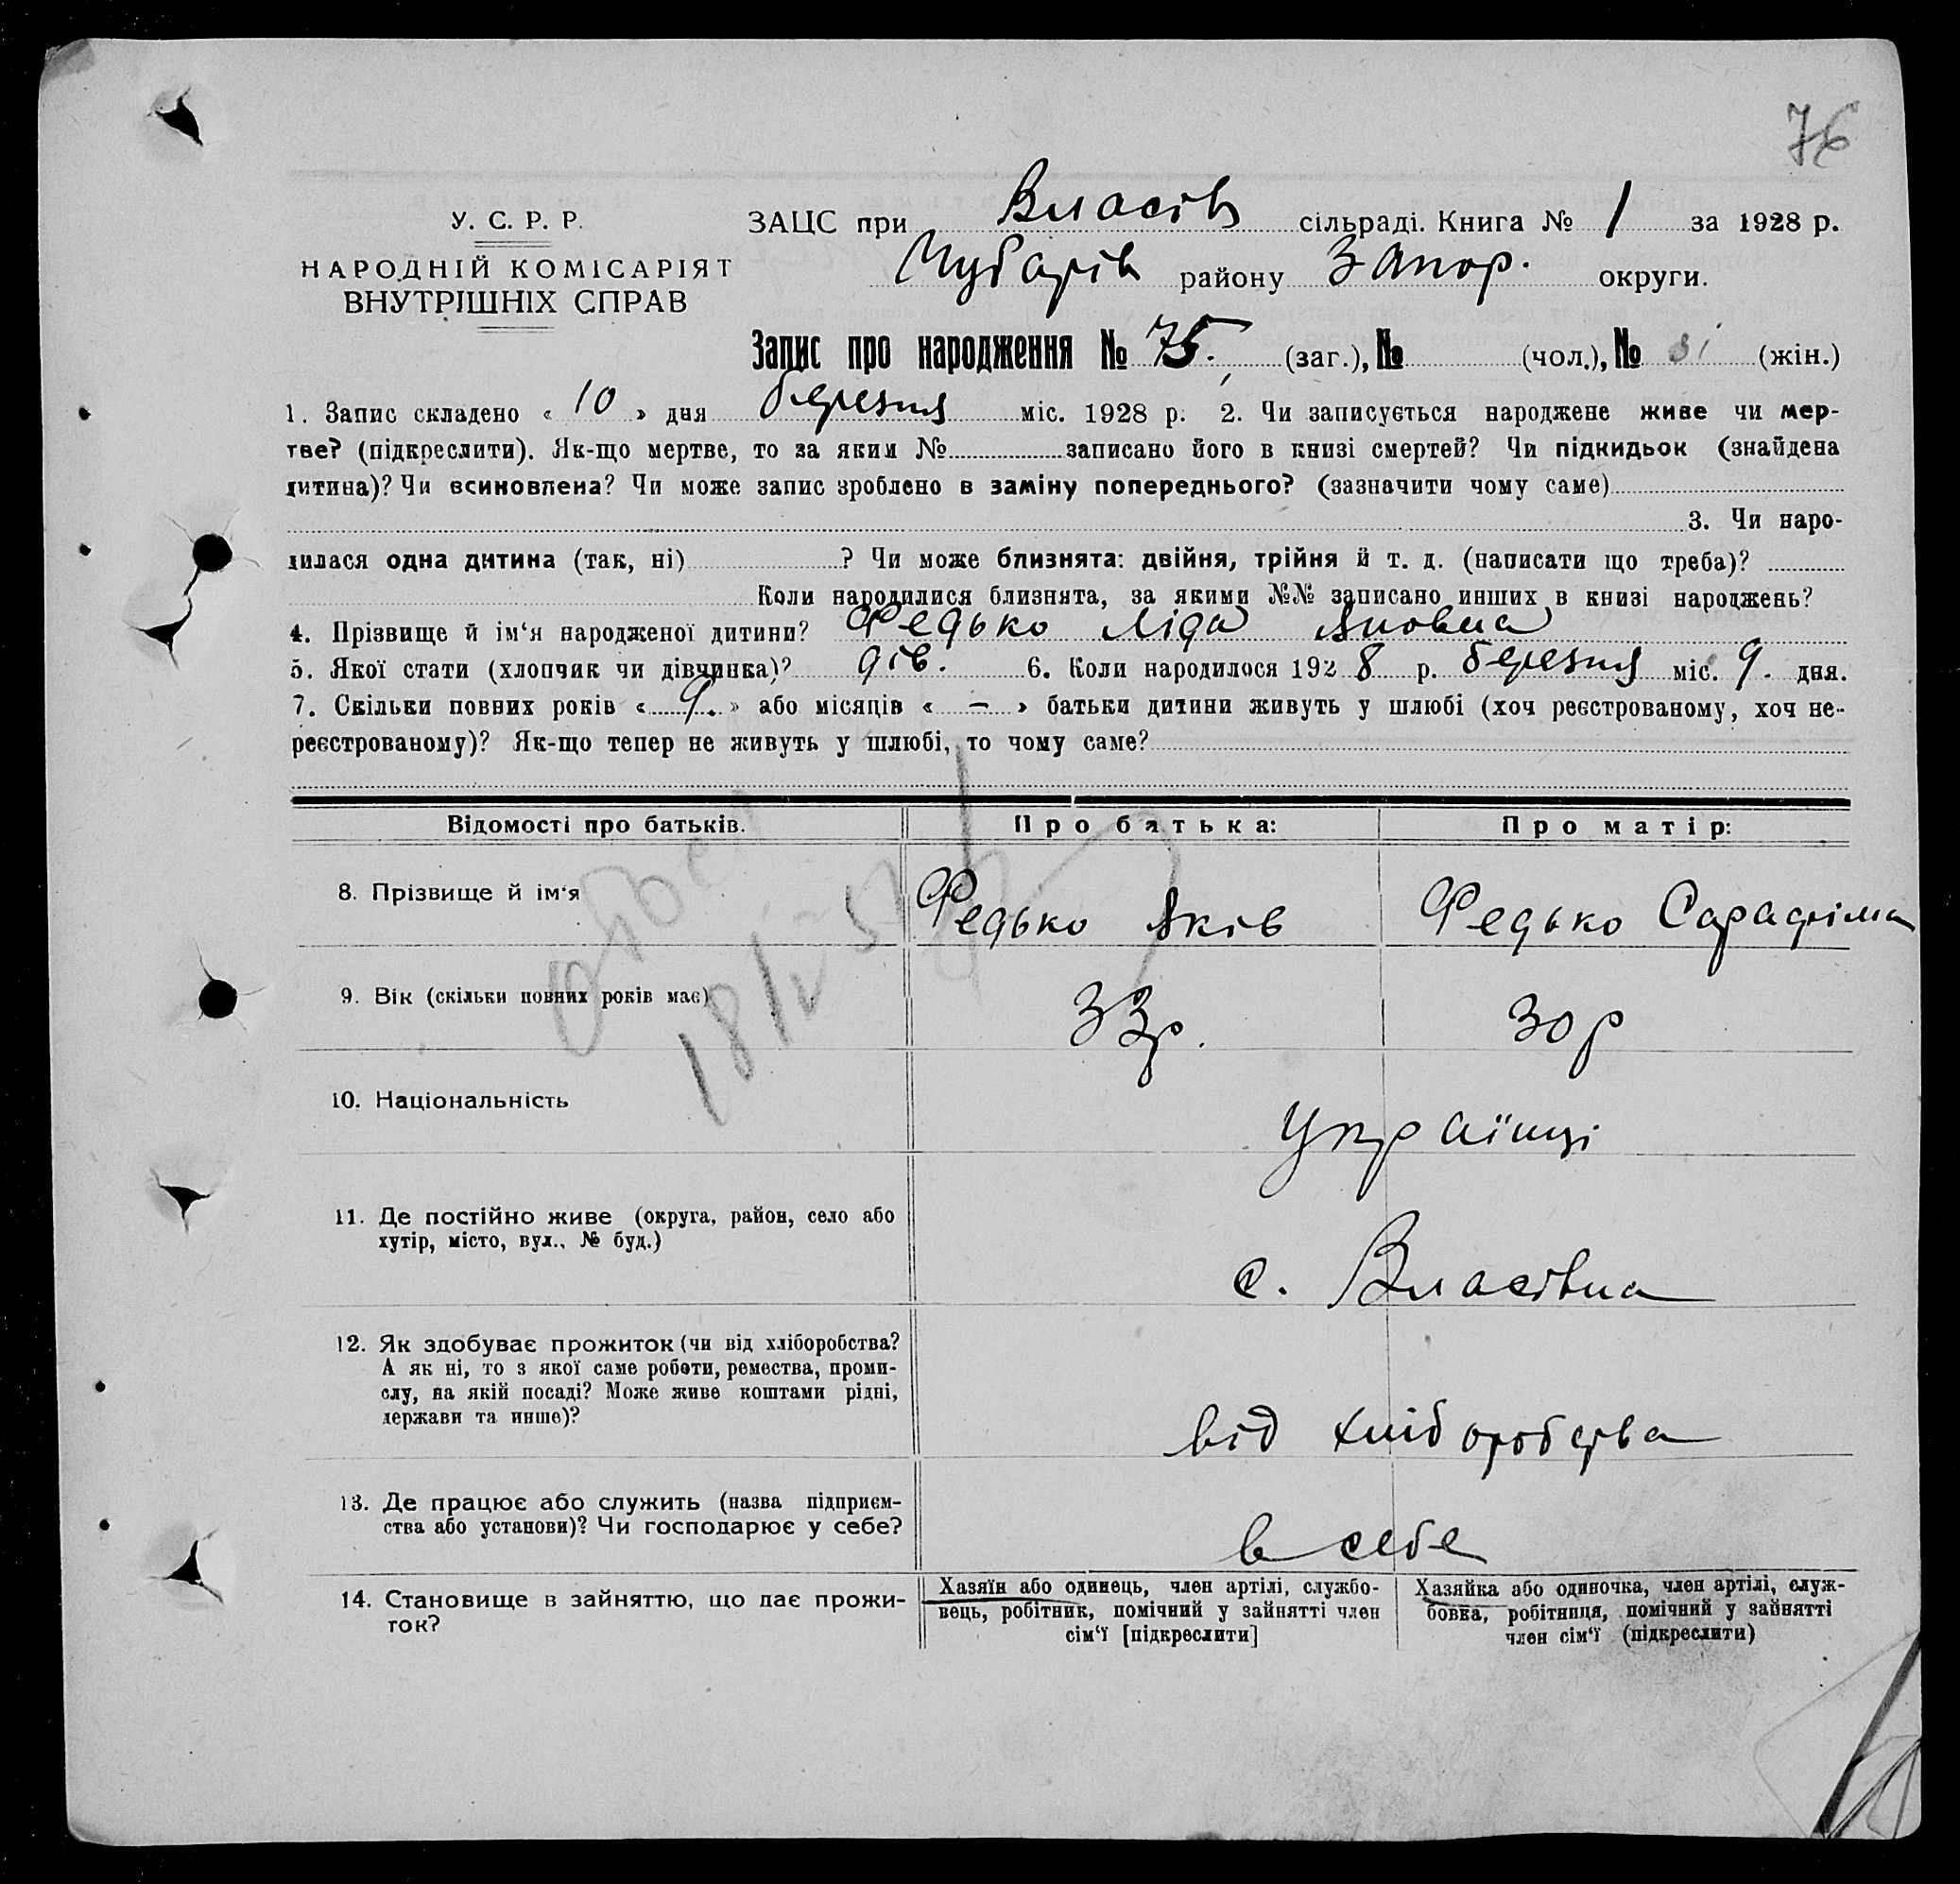 76
У. С. Р. Р.
НАРОДНІЙ КОМІСАРІЯТ
ВНУТРІШНІХ СПРАВ
ЗАЦС при Власів сільраді. Книга № 1 за 1928 р.
Чубарів району Запор. округи.
Запис про народження № 75. (заг.), № (чол.), № 31 (жін.)
1. Запис складено « 10 » дня березня міс. 1928 р. 2. Чи записується народжене живе чи мер-
тве? (підкреслити). Як-що мертве, то за яким № записано його в книзі смертей? Чи підкидьок (знайдена
дитина)? Чи всиновлена? Чи може запис зроблено в заміну попереднього? (зазначити чому саме)
3. Чи наро-
дилася одна дитина (так, ні) ? Чи може близнята: двійня, трійня й т. д. (написати що треба)?
Коли народилися близнята, за якими №№ записано инших в книзі народжень?
4. Прізвище й ім‘я народженої дитини? Федько Ліда Яковна
5. Якої стати (хлопчик чи дівчинка)? дів. 6. Коли народилося 1928 р. березня міс. 9. дня.
7. Скільки повних років « 9. » або місяців « – » батьки дитини живуть у шлюбі (хоч реєстрованому, хоч не-
реєстрованому)? Як-що тепер не живуть у шлюбі, то чому саме?
Відомості про батьків. Про батька: Про матір:
8. Прізвище й ім‘я Федько Яків Федько Сарафіма
9. Вік (скільки повних років має) 33р. 30р
10. Національність Українці
11. Де постійно живе (округа, район, село або
хутір, місто, вул., № буд.)
с. Власівка
12. Як здобуває прожиток (чи від хліборобства?
А як ні, то з якої саме роботи, ремества, проми-
слу, на якій посаді? Може живе коштами рідні,
держави та инше)?
від хліборобства
13. Де працює або служить (назва підприєм-
ства або установи)? Чи господарює у себе?
в себе
14. Становище в зайняттю, що дає прожи-
ток?
Хазяїн або одинець, член артілі, службо-
вець, робітник, помічний у зайнятті член
сім‘ї [підкреслити]
Хазяйка або одиночка, член артілі, служ-
бовка, робітниця, помічний у зайнятті
член сім‘ї (підкреслити)